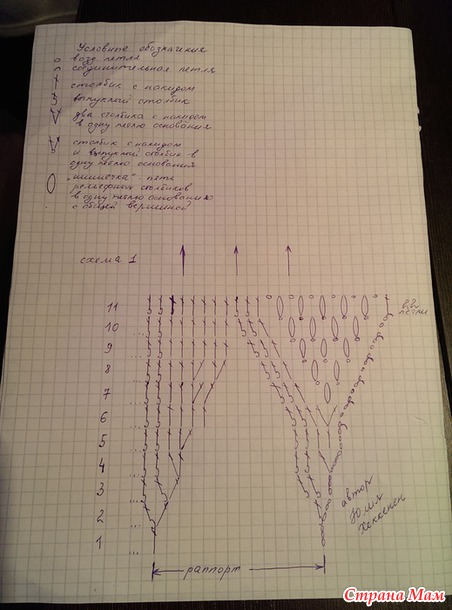 Условные обозначения
возд петля
соединительная петля
столбик с накидом
выпуклый столбик
два столбика с накидом
в одну петлю основания
столбик с накидом
и выпуклый столбик в
одну петлю основания
"шишечка" - пять
рельефных столбиков
в одну петлю основания
с общей вершиной
схема 1
11
10
9
8
7
6
5
4
3
2
1
петли
автор
Юлия
Хеккенен
раппорт
Страна Мам